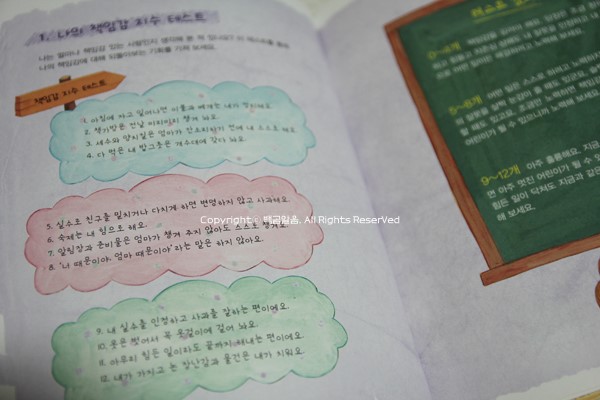 1. 나의 책임감 지수 테스트
나는 얼마나 책임감 있는 사람인지 생각해 본 적 있나요? 이 테스트를 통해
나의 책임감에 대해 되돌아보는 기회를 가져 보세요.
책임감 지수 테스트
1. 아침에 자고 일어나면 이불과 베개는 내가 정리해요.
2. 책가방은 전날 미리미리 챙겨 놔요.
3. 세수와 양치질은 엄마가 잔소리하기 전에 내 스스로 해요.
4. 다 먹은 내 밥그릇은 개수대에 갖다 놔요.
5. 실수로 친구를 밀치거나 다치게 하면 변명하지 않고 사과해요.
6. 숙제는 내 힘으로 해요.
7. 알림장과 준비물은 엄마가 챙겨 주지 않아도 스스로 챙겨요.
8. '나 때문이야. 엄마 때문이야'라는 말은 하지 않아요.
9. 내 실수를 인정하고 사과를 잘하는 편이에요.
10. 옷은 벗어서 꼭 옷걸이에 걸어 놔요.
11. 아무리 힘든 일이라도 끝까지 해내는 편이에요.
12. 내가 가지고 논 장난감과 물건은 내가 치워요.
테스트
0~4개
5~8개 어떤 일은 스스로 하려고 노력하
9~12개 아주 훌륭해요. 지금
면 아주 멋진 어린이가 될 수 있
힘든 일이 닥쳐도 지금과 같은
해 보세요.
Copyright : 백곰일음. All Rights ReserVed